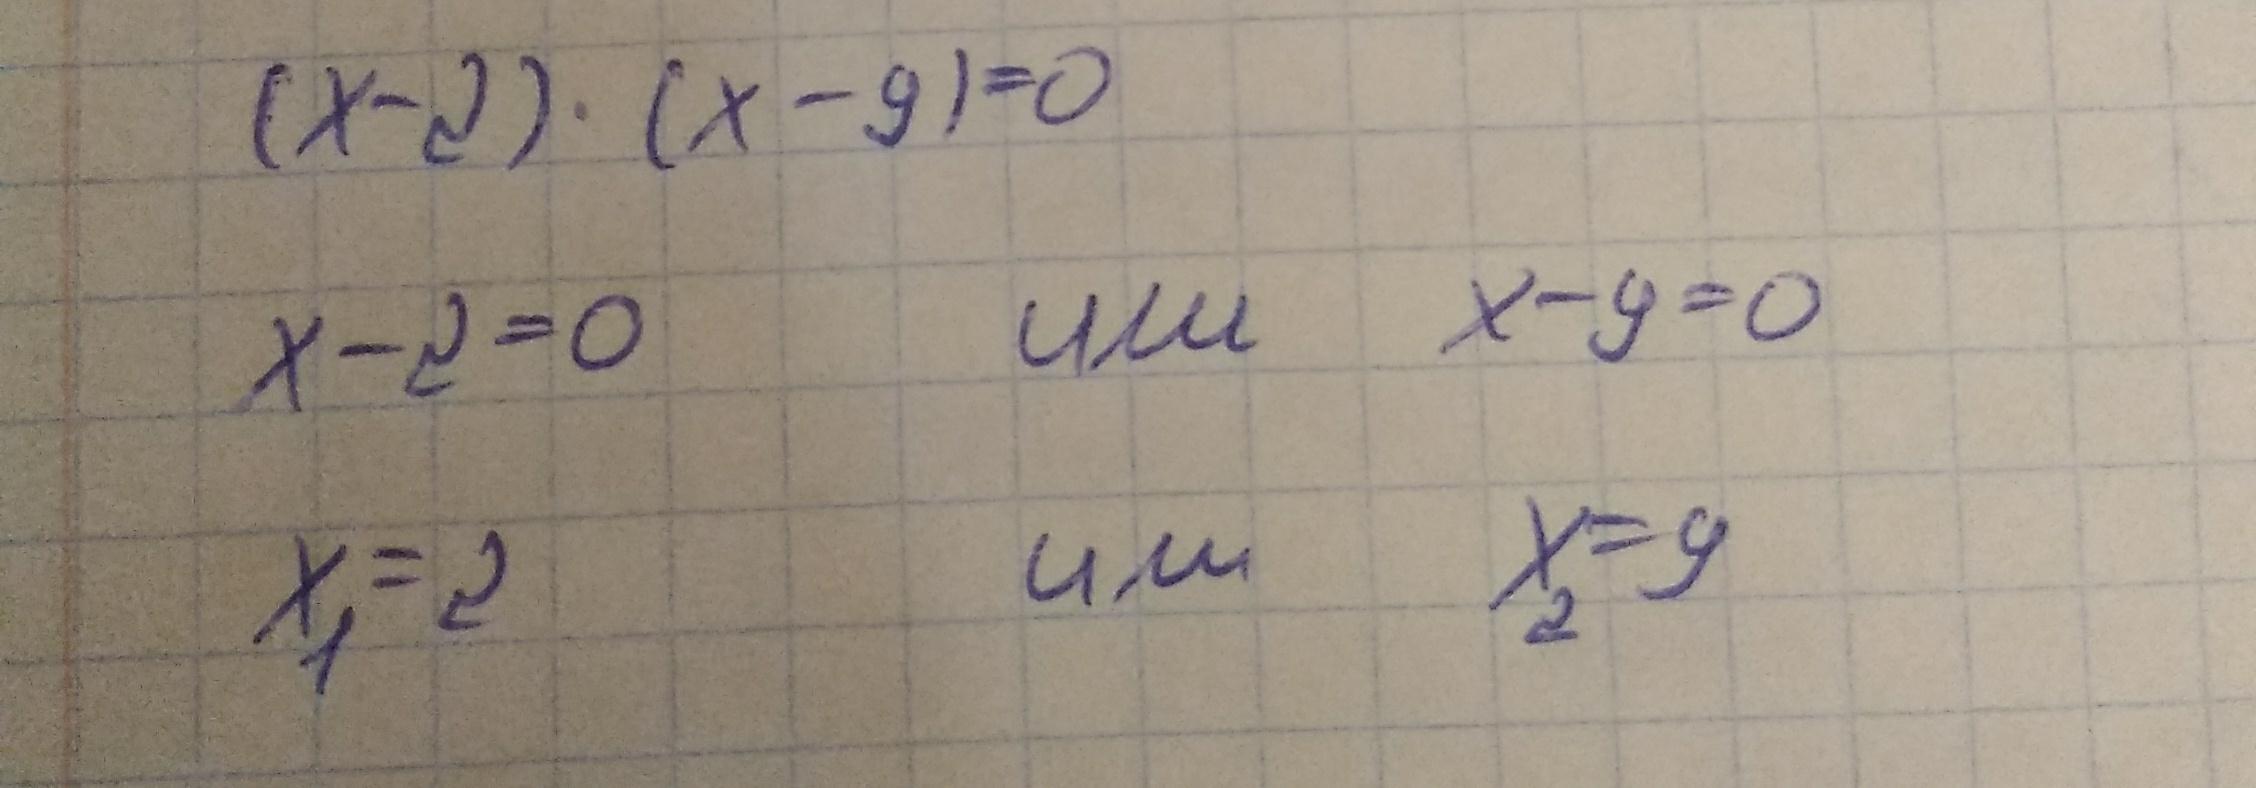 (x-2)·(x-9)=0
x-2=0 или x-9=0
x₁=2 или x₂=9